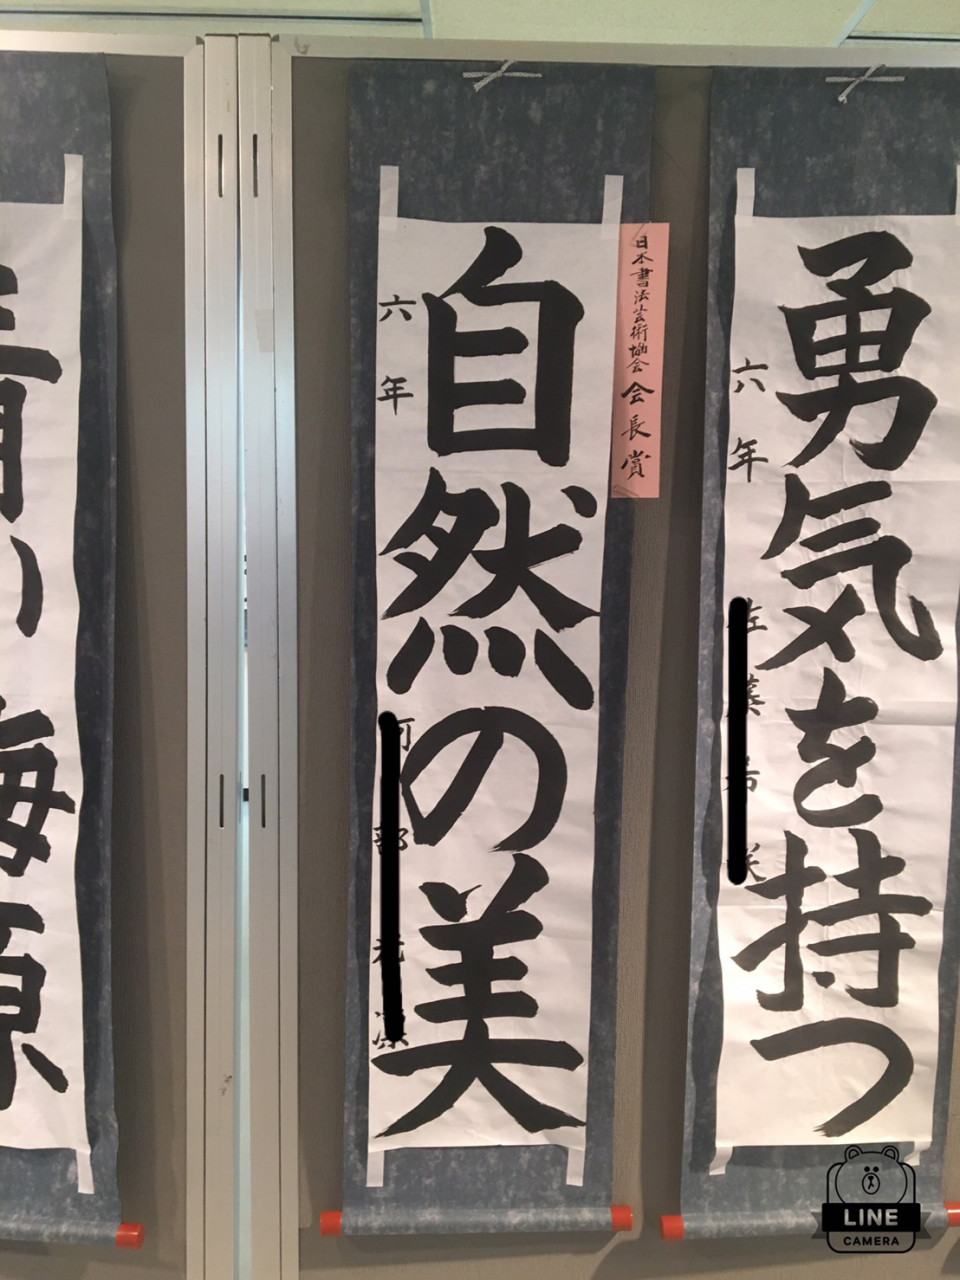 勇気を持つ
六年
日本書法芸術協会会長賞
自然の美
六年
海原
LINE
CAMERA